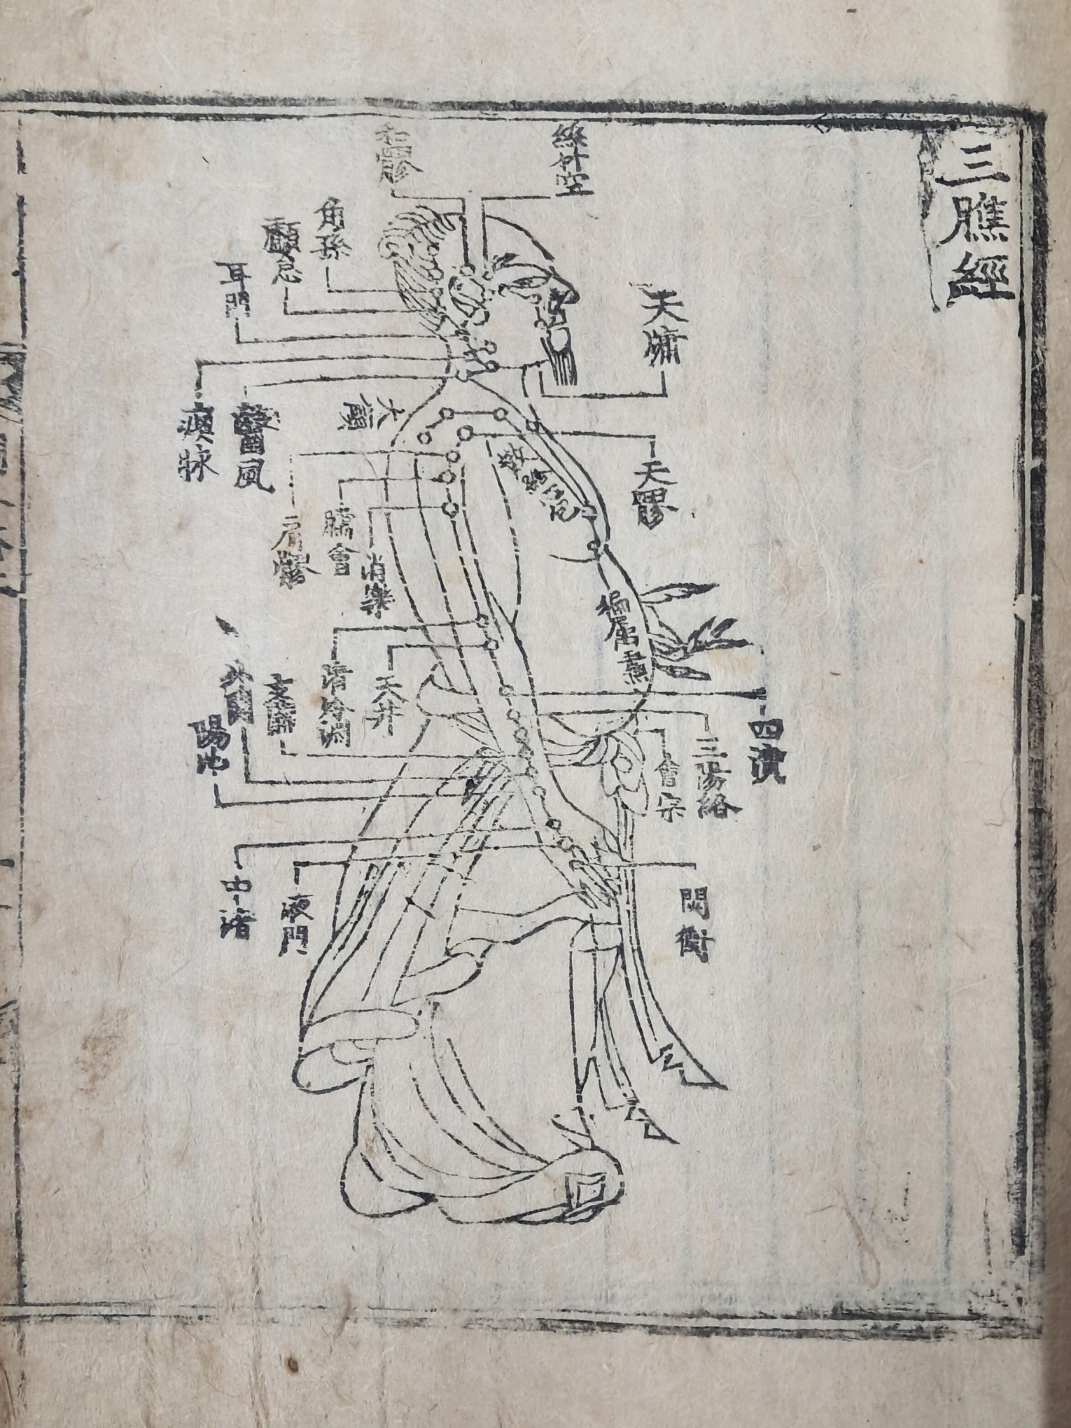 三膲經
絲竹空
和髎
角孫
顱息
耳門
天牖
瘈脉
翳風
大顀
天髎
肩髎
臑會
消樂
清冷渊
天井
外関
支溝
陽池
四瀆
三陽絡
會宗
中渚
液門
関衝